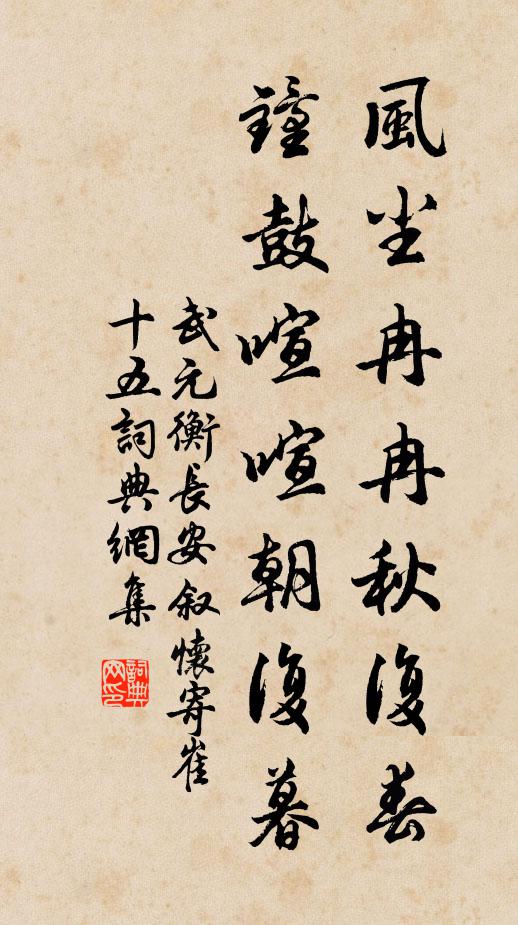 風尘冉冉秋復春
鐘鼓喧喧朝復暮
武元衡長安叙懷寄崔
十五詞典網集
詞典
网印